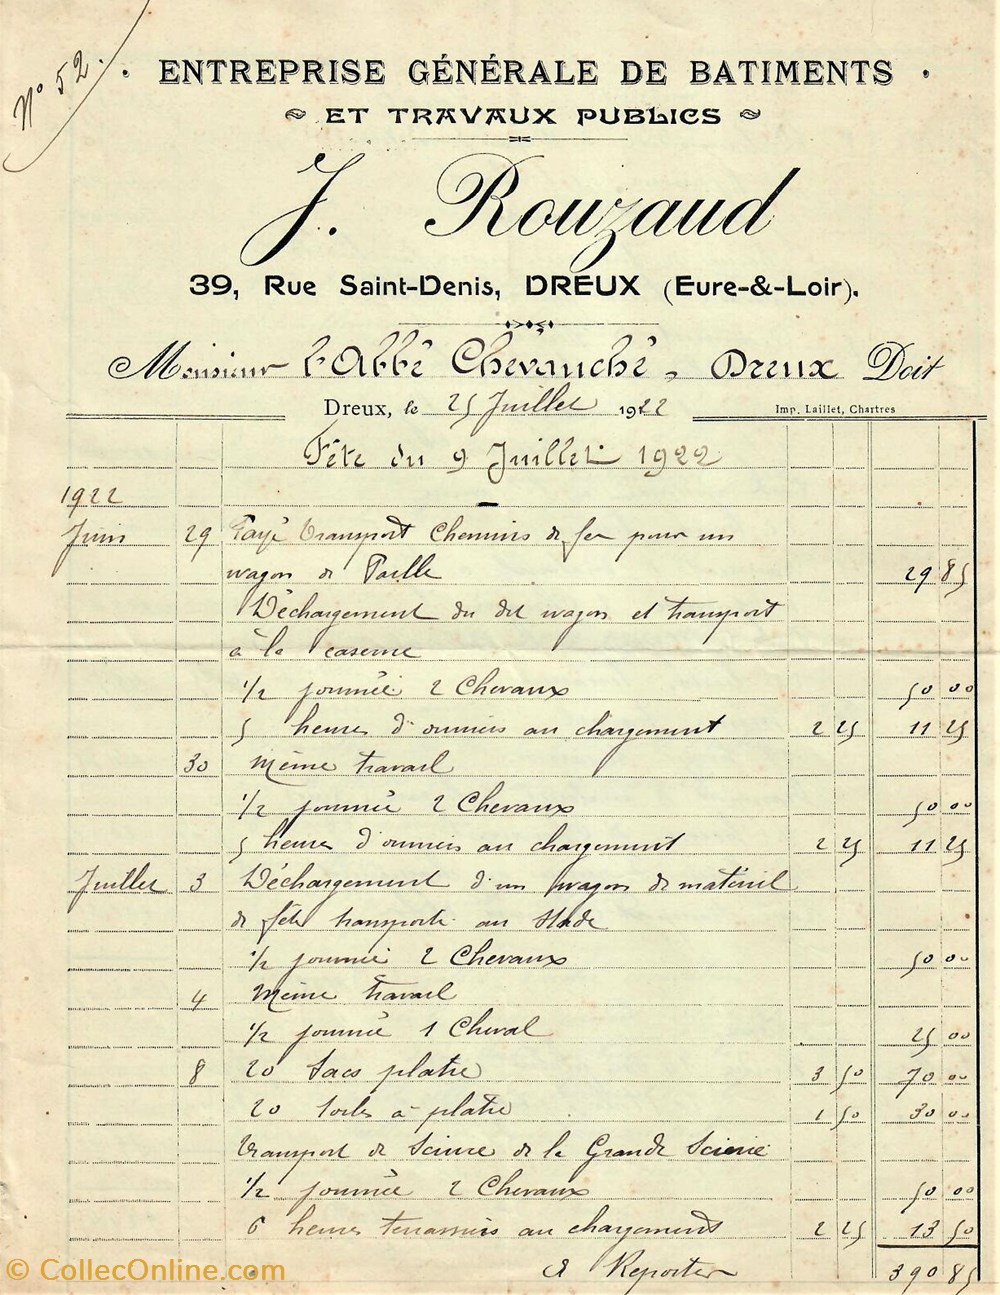 N° 52.
ENTREPRISE GÉNÉRALE DE BATIMENTS
ET TRAVAUX PUBLICS
J. Rouzaud
39, Rue Saint-Denis, DREUX (Eure-&-Loir).
Monsieur l'Abbé Chevauché, Dreux Doit
Dreux, le 25 Juillet 1922
Imp. Laillet, Chartres
Fête du 9 Juillet 1922
1922
Juin 29 Payé transport Chemins de fer pour un
wagon de Paille 29 85
Déchargement du dit wagon et transport
à la caserne
1/2 journée 2 Chevaux 50 00
5 heures d'ouvriers au chargement 2 25 11 25
30 Même travail
1/2 journée 2 Chevaux 50 00
5 heures d'ouvriers au chargement 2 25 11 25
Juillet 3 Déchargement d'un wagon de matériel
de fête transporté au Stade
1/2 journée 2 Chevaux 50 00
4 Même travail
1/2 journée 1 Cheval 25 00
8 20 Sacs platre 3 50 70 00
20 toiles à platre 1 50 30 00
transport de Sciure de la Grande Scierie
1/2 journée 2 Chevaux 50 00
6 heures terrassiers au chargement 2 25 13 50
A Reporter 390 85
© CollecOnline.com